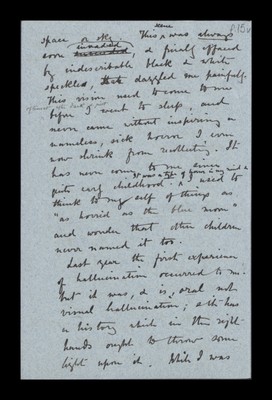 space or sky. This scene was always
soon invaded & finally effaced
by indescribable black & white
speckles, that dazzled me painfully.
This vision used to come to me
before I went to sleep, and
never came without inspiring a
nameless, sick horror I even
now shrink from recollecting. It
has never come to me since
quite early childhood. I used to
think to my self of things as
"as horrid as the blue moon"
and wonder that other children
never named it too.
Last year the first experience
of hallucination occurred to me.
but it was, & is, aural not
visual hallucination; & it has
a history which in the right
hands ought to throw some
light upon it. While I was